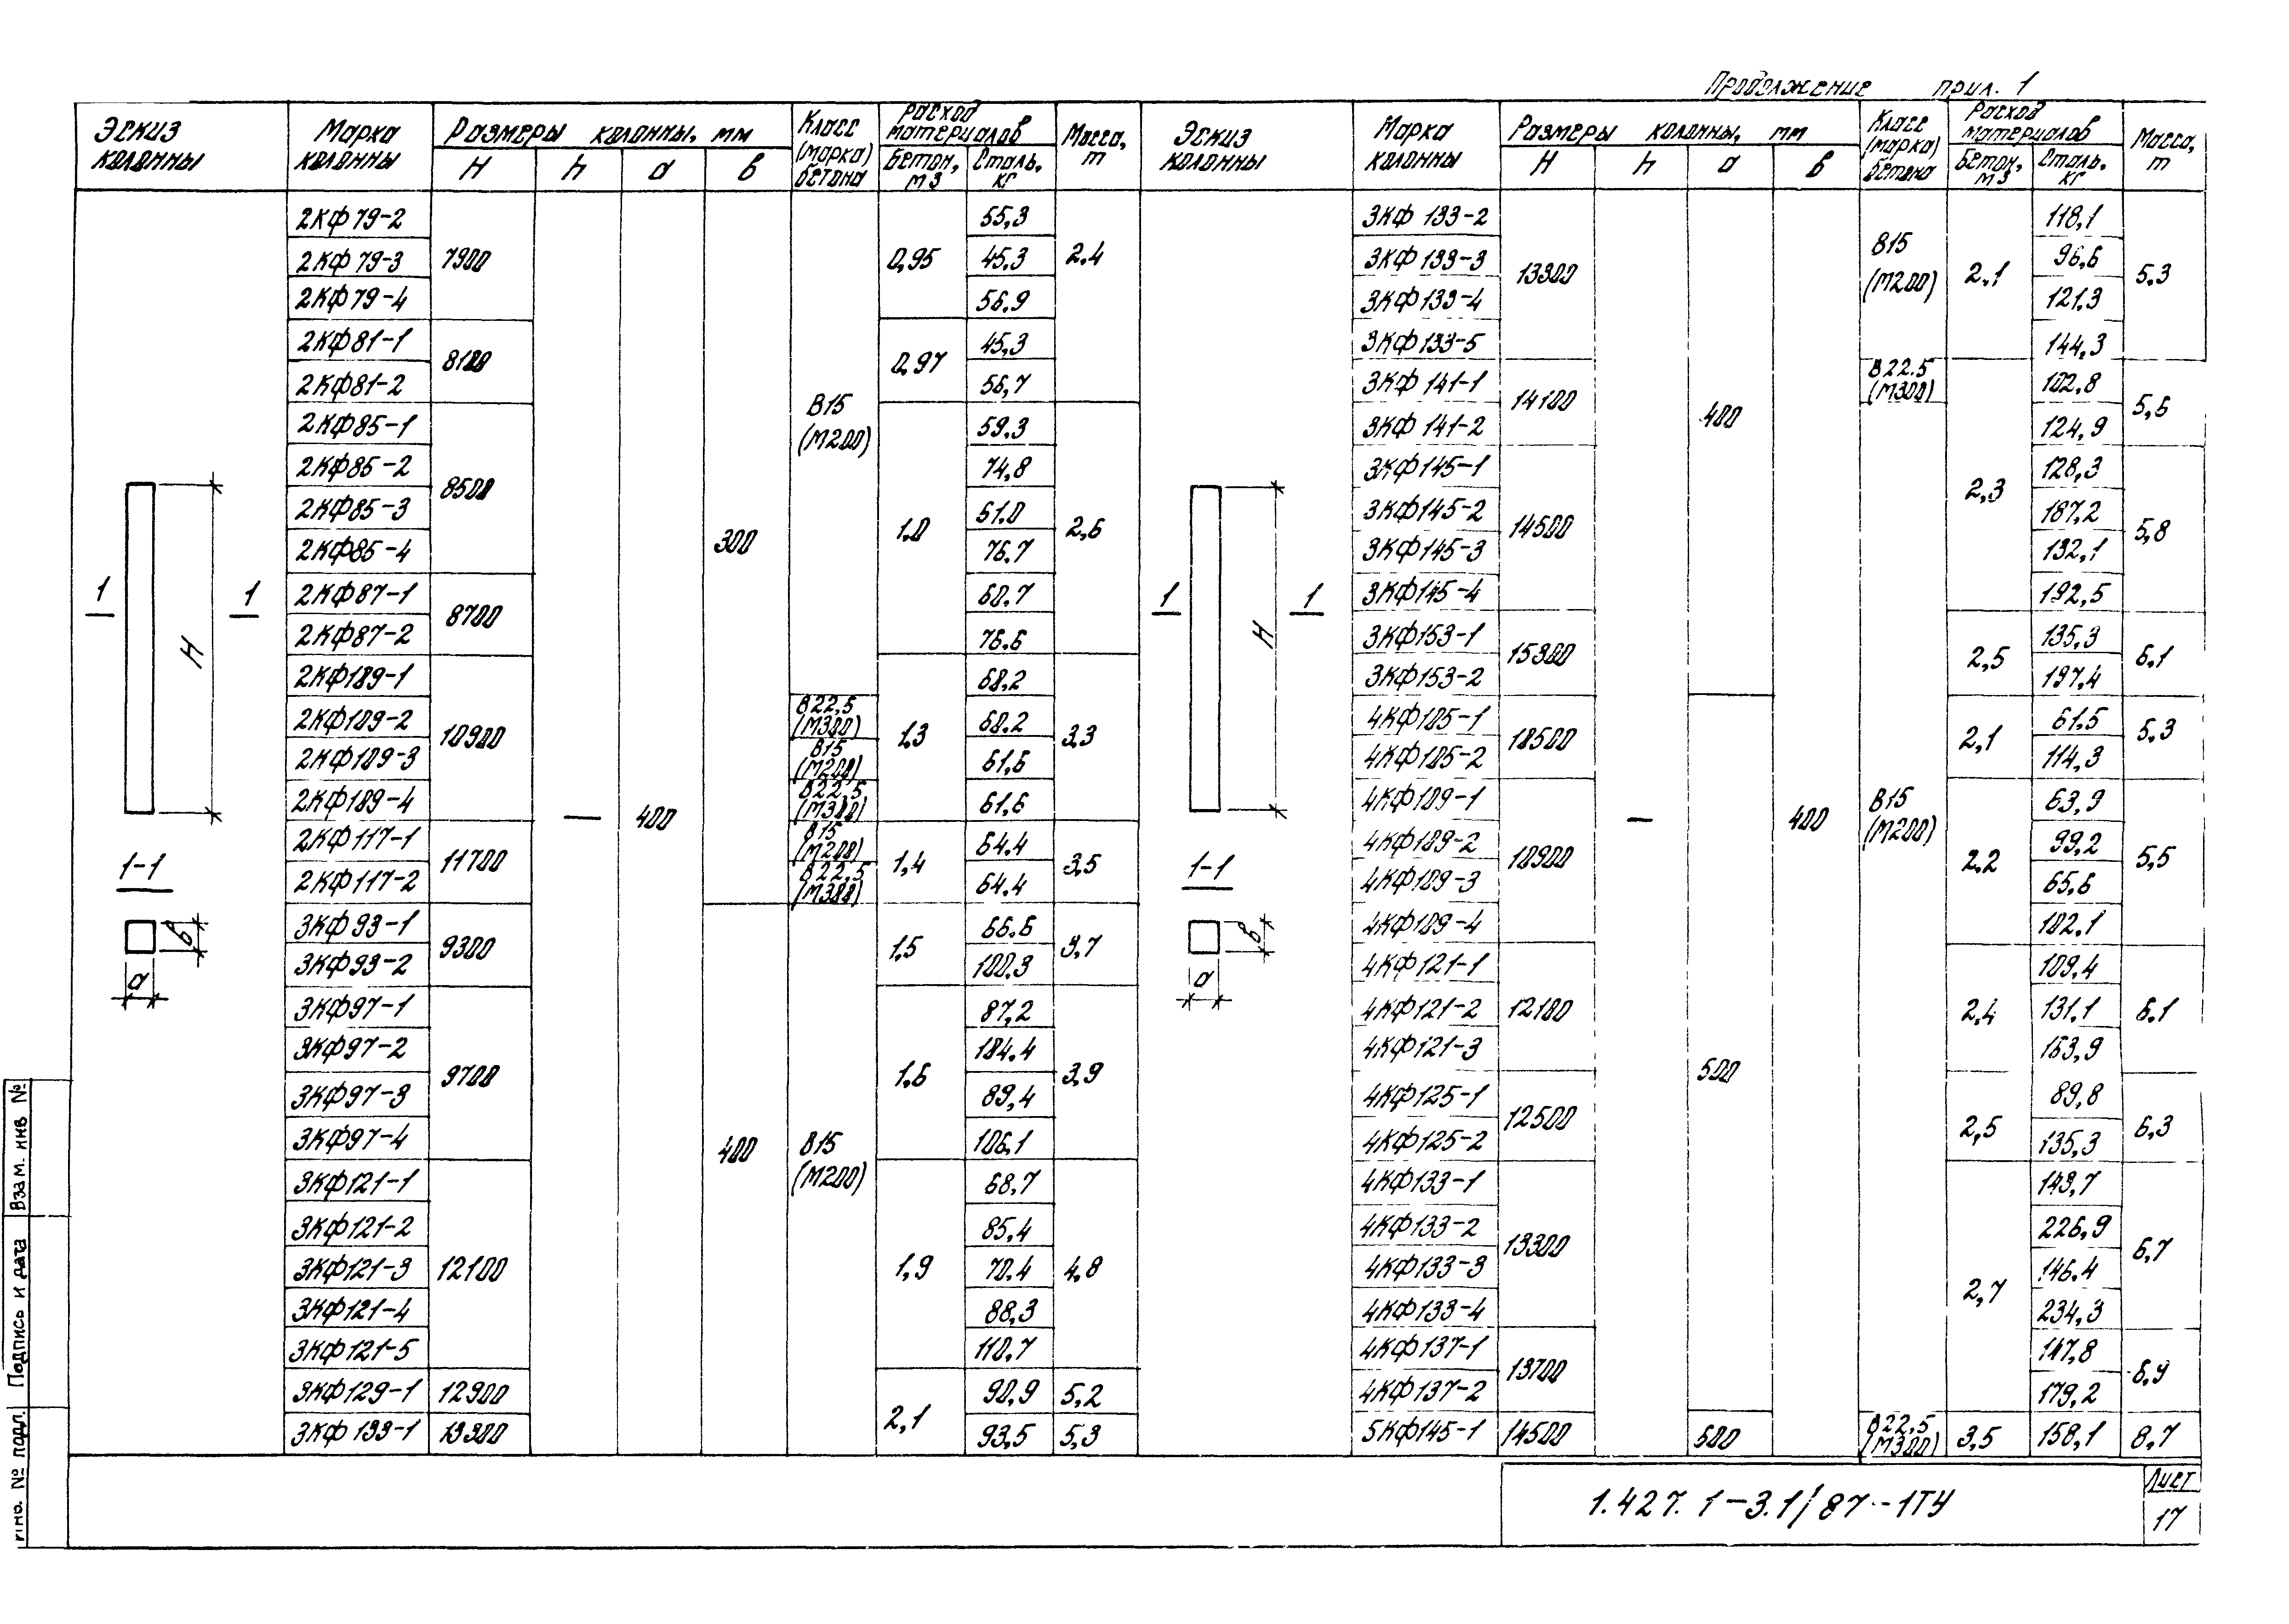 Продолжение прил. 1
Эскиз колонны | Марка колонны | Размеры колонны, мм | Класс (марка) бетона | Расход материалов | Масса, т
H | h | а | в | Бетон, м3 | Сталь, кг
2КФ79-2 | 7900 | — | 400 | 300 | В15 (М200) | 0,95 | 55,3 | 2,4
2КФ79-3 | 45,3
2КФ79-4 | 56,9
2КФ81-1 | 8100 | 0,97 | 45,3
2КФ81-2 | 56,7
2КФ85-1 | 8500 | 1,0 | 59,3 | 2,6
2КФ85-2 | 74,8
2КФ85-3 | 61.0
2КФ85-4 | 76,7
2КФ87-1 | 8700 | 60.7
2КФ87-2 | 76.6
2КФ109-1 | 10900 | 1,3 | 68,2 | 3,3
2КФ109-2 | В22,5 (М300) | 60.2
2КФ109-3 | В15 (М200) | 61,6
2КФ109-4 | В22,5 (М300) | 61,6
2КФ117-1 | 11700 | В15 (М200) | 1,4 | 64.4 | 3,5
2КФ117-2 | В22,5 (М300) | 64.4
3КФ93-1 | 9300 | 400 | В15 (М200) | 1,5 | 66.6 | 3,7
3КФ93-2 | 100,3
3КФ97-1 | 9700 | 1,6 | 87,2 | 3,9
3КФ97-2 | 104.4
3КФ97-3 | 89,4
3КФ97-4 | 106,1
3КФ121-1 | 12100 | 1,9 | 68,7 | 4,8
3КФ121-2 | 85,4
3КФ121-3 | 70.4
3КФ121-4 | 88,3
3КФ121-5 | 110,7
3КФ129-1 | 12900 | 2,1 | 90,9 | 5,2
3КФ133-1 | 13300 | 93,5 | 5,3
1 1
H
1-1
в
а
Эскиз колонны | Марка колонны | Размеры колонны, мм | Класс (марка) бетона | Расход материалов | Масса, т
H | h | а | в | Бетон, м3 | Сталь, кг
3КФ133-2 | 13300 | — | 400 | 400 | В15 (М200) | 2,1 | 118,1 | 5,3
3КФ133-3 | 96,6
3КФ133-4 | 121,3
3КФ133-5 | 144,3
3КФ141-1 | 14100 | В22.5 (М300) | 2,3 | 102,8 | 5,6
3КФ141-2 | В15 (М200) | 124,9
3КФ145-1 | 14500 | 128,3 | 5,8
3КФ145-2 | 187,2
3КФ145-3 | 132,1
3КФ145-4 | 192,5
3КФ153-1 | 15300 | 2,5 | 135,3 | 6.1
3КФ153-2 | 197,4
4КФ105-1 | 10500 | 500 | 2,1 | 61.5 | 5,3
4КФ105-2 | 114,3
4КФ109-1 | 10900 | 2,2 | 63,9 | 5,5
4КФ109-2 | 99,2
4КФ109-3 | 65,6
4КФ109-4 | 102,1
4КФ121-1 | 12100 | 2,4 | 109,4 | 6.1
4КФ121-2 | 131.1
4КФ121-3 | 163,9
4КФ125-1 | 12500 | 2,5 | 89,8 | 6,3
4КФ125-2 | 135,3
4КФ133-1 | 13300 | 2,7 | 143,7 | 6,7
4КФ133-2 | 226,9
4КФ133-3 | 146.4
4КФ133-4 | 234,3
4КФ137-1 | 13700 | 147,8 | 6,9
4КФ137-2 | 179,2
5КФ145-1 | 14500 | 600 | В22,5 (М300) | 3,5 | 158,1 | 8,7
1 1
H
1-1
в
а
Взам. инв №
Подпись и дата
Инв. № подл.
1.427.1-3.1/87-1ТУ
Лист
17